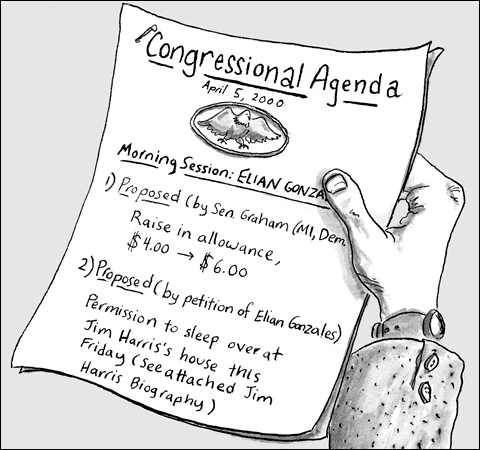 Congressional Agenda
April 5, 2000
Morning Session: ELIAN GONZA
1) Proposed (by Sen. Graham (MI, Dem.
Raise in allowance,
$4.00 → $6.00
2) Proposed (by petition of Elian Gonzales)
Permission to sleep over at
Jim Harris's house this
Friday (See attached Jim
Harris Biography)